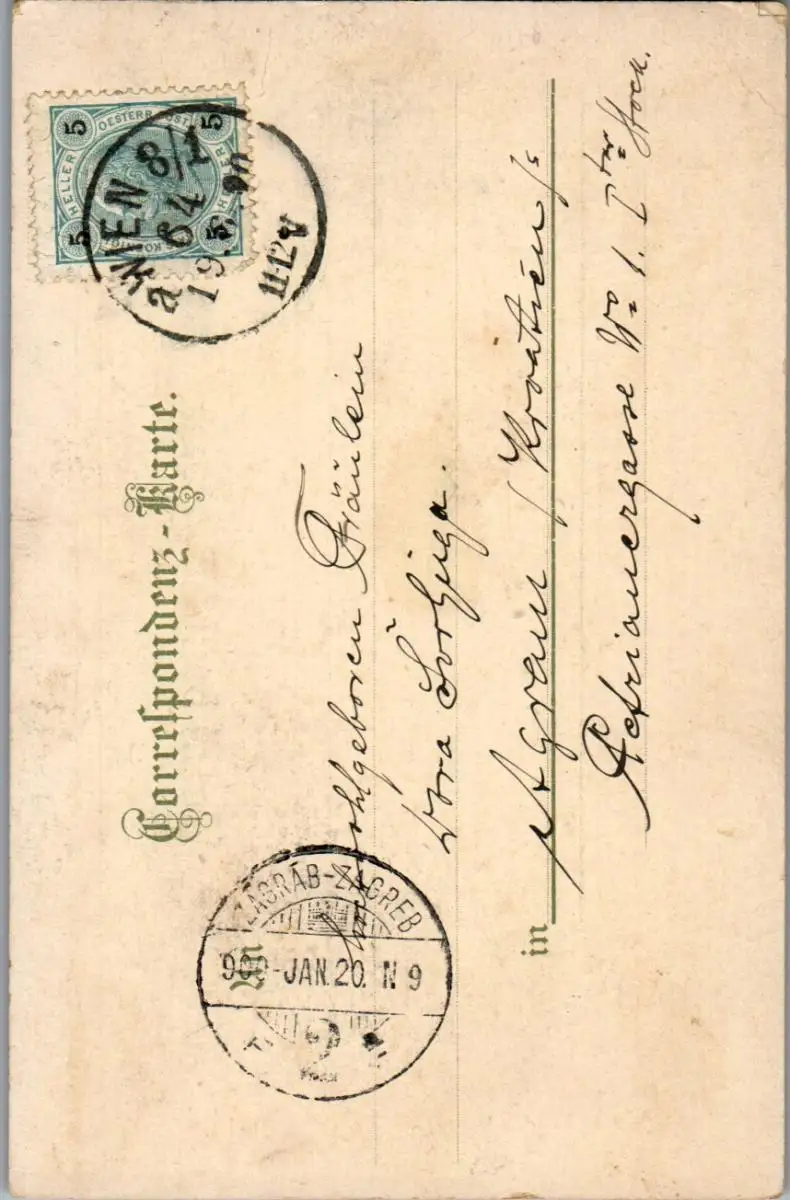 Correspondenz-Karte.
5 OESTERR. POST 5
HELLER
5 5
WIEN 8/1
a 64
19.
11-12 V
An
ZÁGRÁB-ZAGREB
900-JAN.20. N 9
2
Wohlgeboren Fräulein
Dora
in Agram / Kroatien /
Petrinnergasse No 1. I ter Stock.